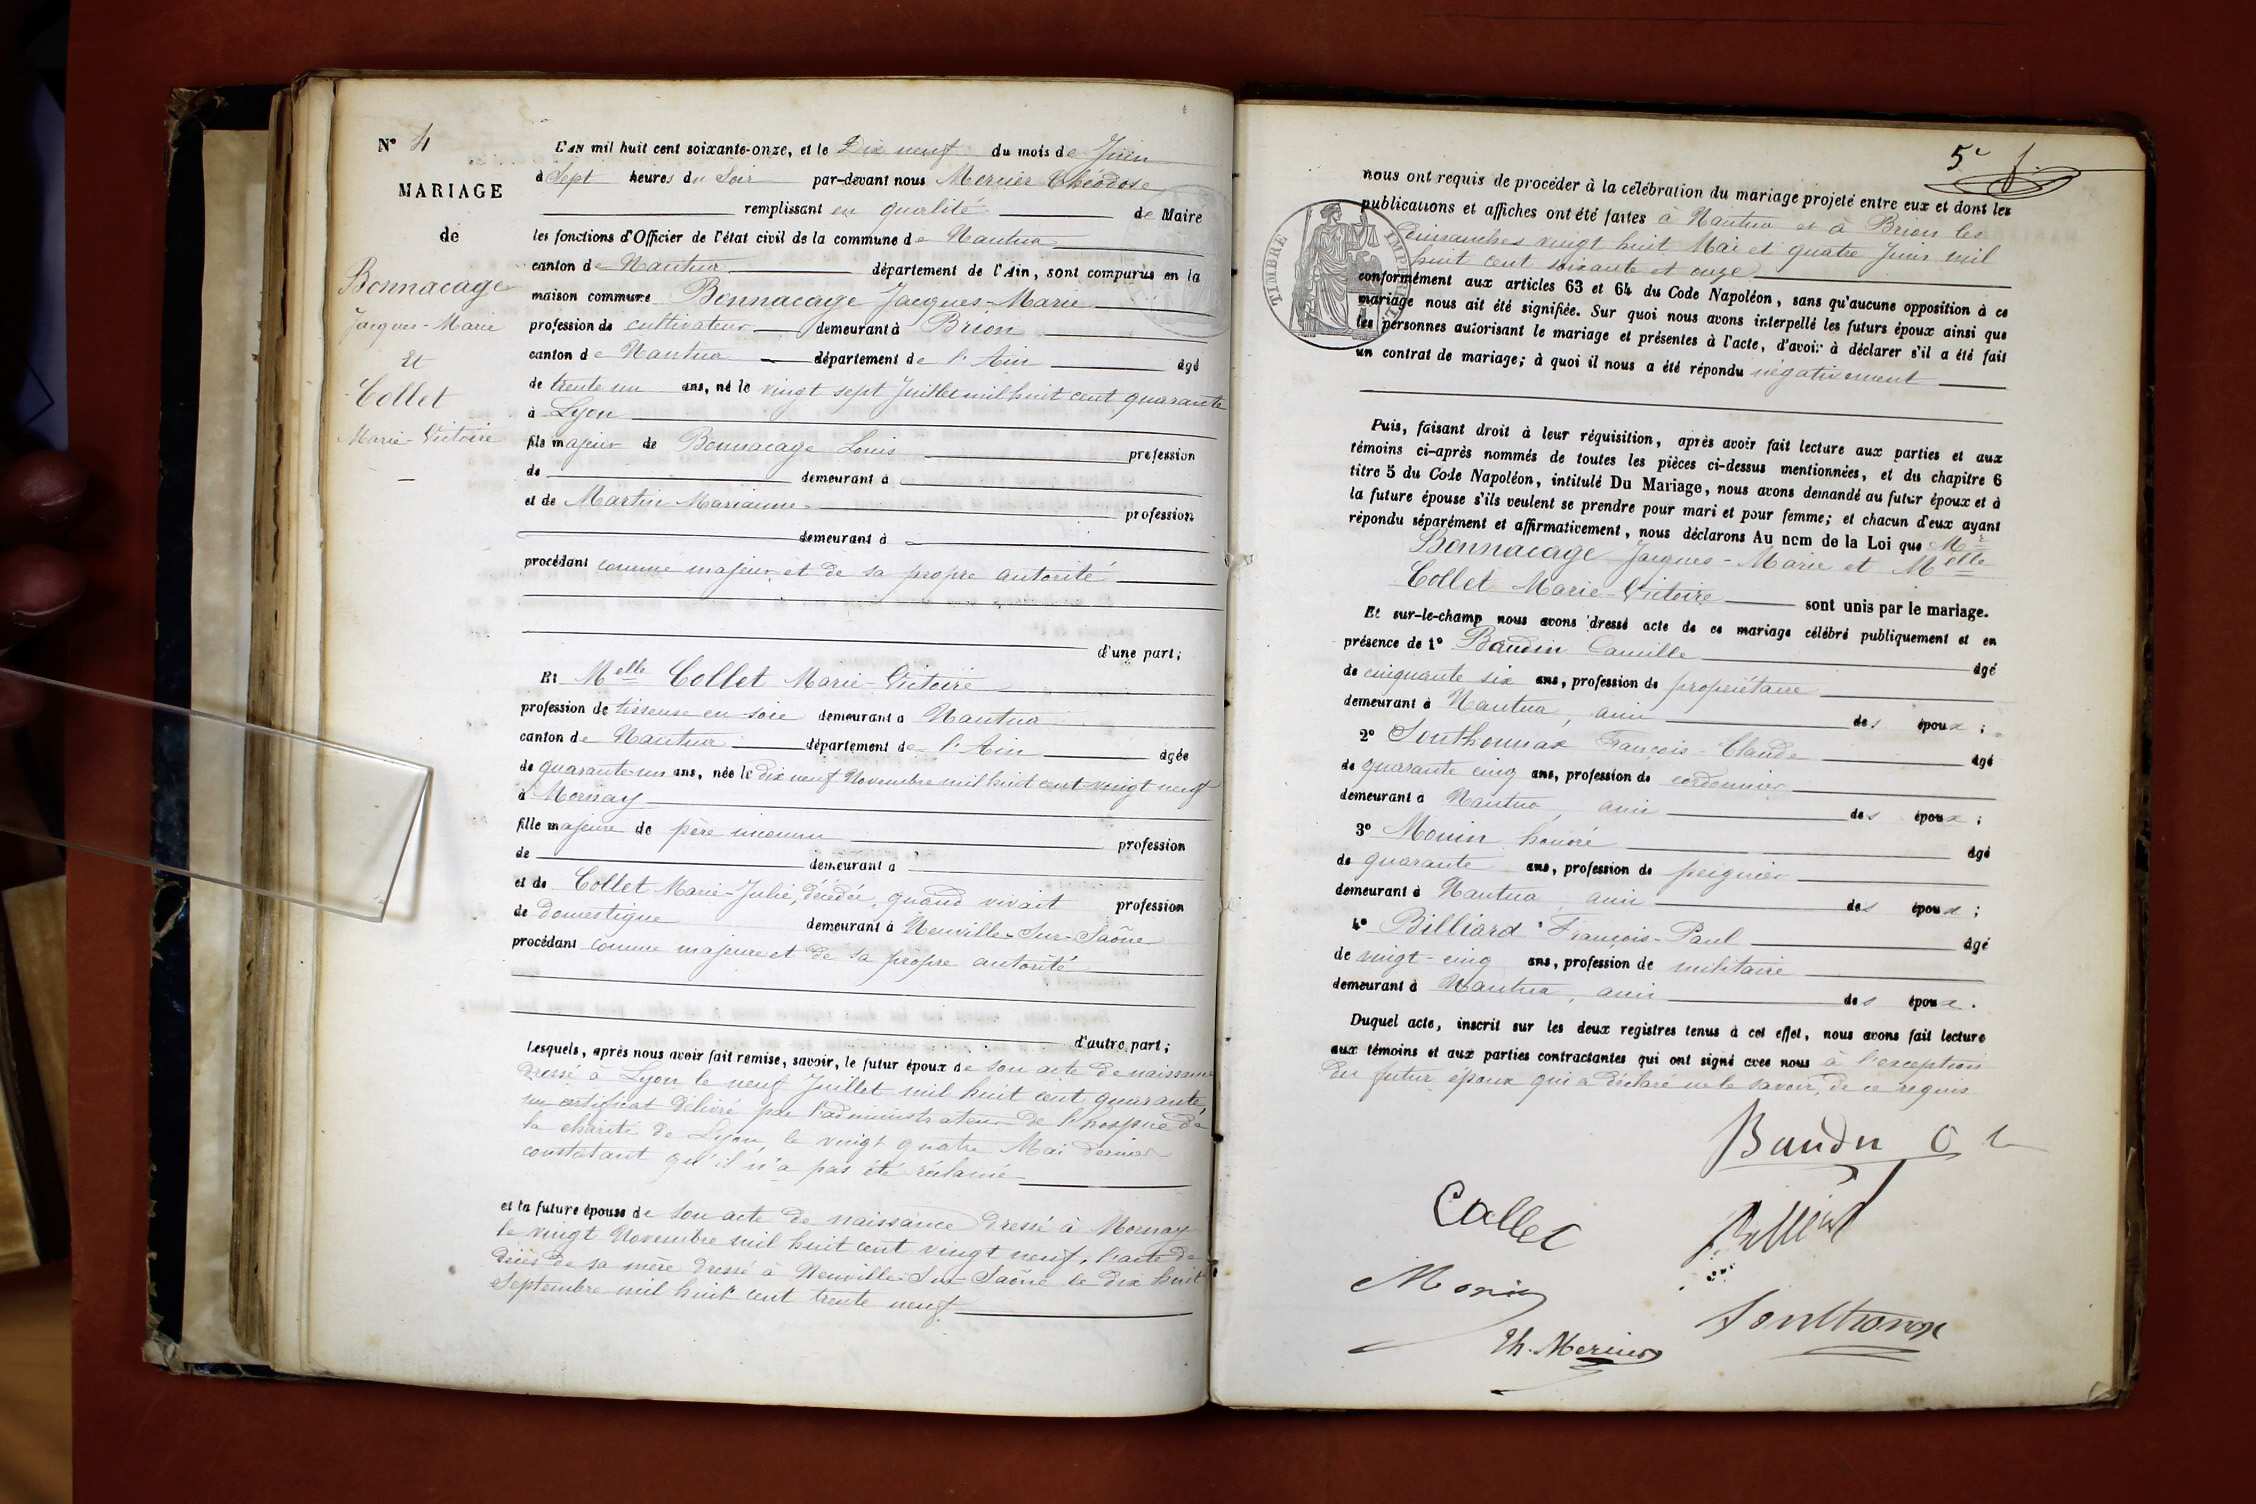 N° 4
MARIAGE
de
Bonnacage
Jacques-Marie
Et
Collet
Marie-Victoire
L'AN mil huit cent soixante-onze, et le Dix neuf du mois de Juin
à Sept heures du Soir par-devant nous Mercier Théodose
remplissant en qualité de Maire
les fonctions d'Officier de l'état civil de la commune de Nantua
canton de Nantua département de l'Ain, sont comparus en la
maison commune Bonnacage Jacques-Marie
profession de cultivateur demeurant à Brion
canton de Nantua département de l'Ain âgé
de trente un ans, né le vingt sept Juillet mil huit cent quarante
à Lyon
fils majeur de Bonnacage Louis profession
de demeurant à
et de Martin Marianne profession
demeurant à
procédant comme majeur et de sa propre autorité
d'une part;
Et Melle Collet Marie-Victoire
profession de tisseuse en soie demeurant à Nantua
canton de Nantua département de l'Ain âgée
de quarante-un ans, née le dix neuf Novembre mil huit cent vingt neuf
à Mornay
fille majeure de père inconnu profession
de demeurant à
et de Collet Marie-Julie, décédée, quand vivait profession
de domestique demeurant à Neuville-Sur-Saône
procédant comme majeure et de sa propre autorité
d'autre part;
Lesquels, après nous avoir fait remise, savoir, le futur époux de son acte de naissance
dressé à Lyon le neuf Juillet mil huit cent quarante,
un certificat délivré par l'administrateur de l'hospice de
la charité de Lyon, le vingt quatre Mai dernier
constatant qu'il n'a pas été réclamé
et la future épouse de son acte de naissance dressé à Mornay
le vingt Novembre mil huit cent vingt neuf, l'acte de
décès de sa mère dressé à Neuville-Sur-Saône le dix huit
Septembre mil huit cent trente neuf
5e f.
nous ont requis de procéder à la célébration du mariage projeté entre eux et dont les
publications et affiches ont été faites à Nantua et à Brion les
Dimanches vingt huit Mai et quatre Juin mil
huit cent soixante et onze
TIMBRE IMPERIAL
conformément aux articles 63 et 64 du Code Napoléon, sans qu'aucune opposition à ce
mariage nous ait été signifiée. Sur quoi nous avons interpellé les futurs époux ainsi que
les personnes autorisant le mariage et présentes à l'acte, d'avoir à déclarer s'il a été fait
un contrat de mariage; à quoi il nous a été répondu négativement
Puis, faisant droit à leur réquisition, après avoir fait lecture aux parties et aux
témoins ci-après nommés de toutes les pièces ci-dessus mentionnées, et du chapitre 6
titre 5 du Code Napoléon, intitulé Du Mariage, nous avons demandé au futur époux et à
la future épouse s'ils veulent se prendre pour mari et pour femme; et chacun d'eux ayant
répondu séparément et affirmativement, nous déclarons Au nom de la Loi que Mr
Bonnacage Jacques-Marie et Melle
Collet Marie-Victoire sont unis par le mariage.
Et sur-le-champ nous avons dressé acte de ce mariage célébré publiquement et en
présence de 1° Baudin Camille âgé
de cinquante six ans, profession de propriétaire
demeurant à Nantua, ami des époux;
2° Southonnax François-Claude âgé
de quarante cinq ans, profession de cordonnier
demeurant à Nantua, ami des époux;
3° Monin honoré âgé
de quarante ans, profession de peignier
demeurant à Nantua, ami des époux;
4° Billiard François-Paul âgé
de vingt-cinq ans, profession de militaire
demeurant à Nantua, ami des époux.
Duquel acte, inscrit sur les deux registres tenus à cet effet, nous avons fait lecture
aux témoins et aux parties contractantes qui ont signé avec nous à l'exception
du futur époux qui a déclaré ne le savoir, de ce requis
Baudin
Collet
Billiard
Monin
Southonax
Th. Mercier